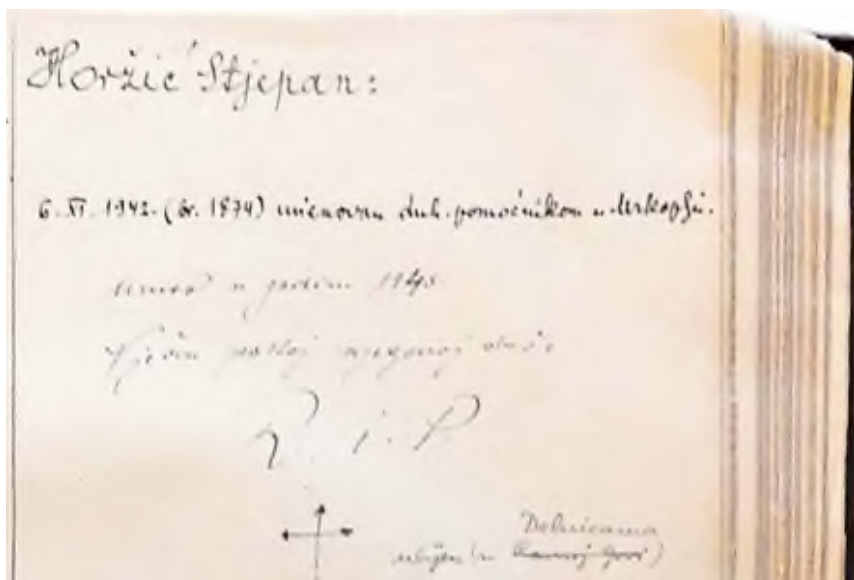 Horžić Stjepan:
6. XI. 1942. (br. 1874) imenovan duh. pomoćnikom u Mrkoplju.
umro u godini 1945
Vječni pokoj njegovoj duši
R. i. P.
Delnicama
ubijen (u Ravnoj Gori)